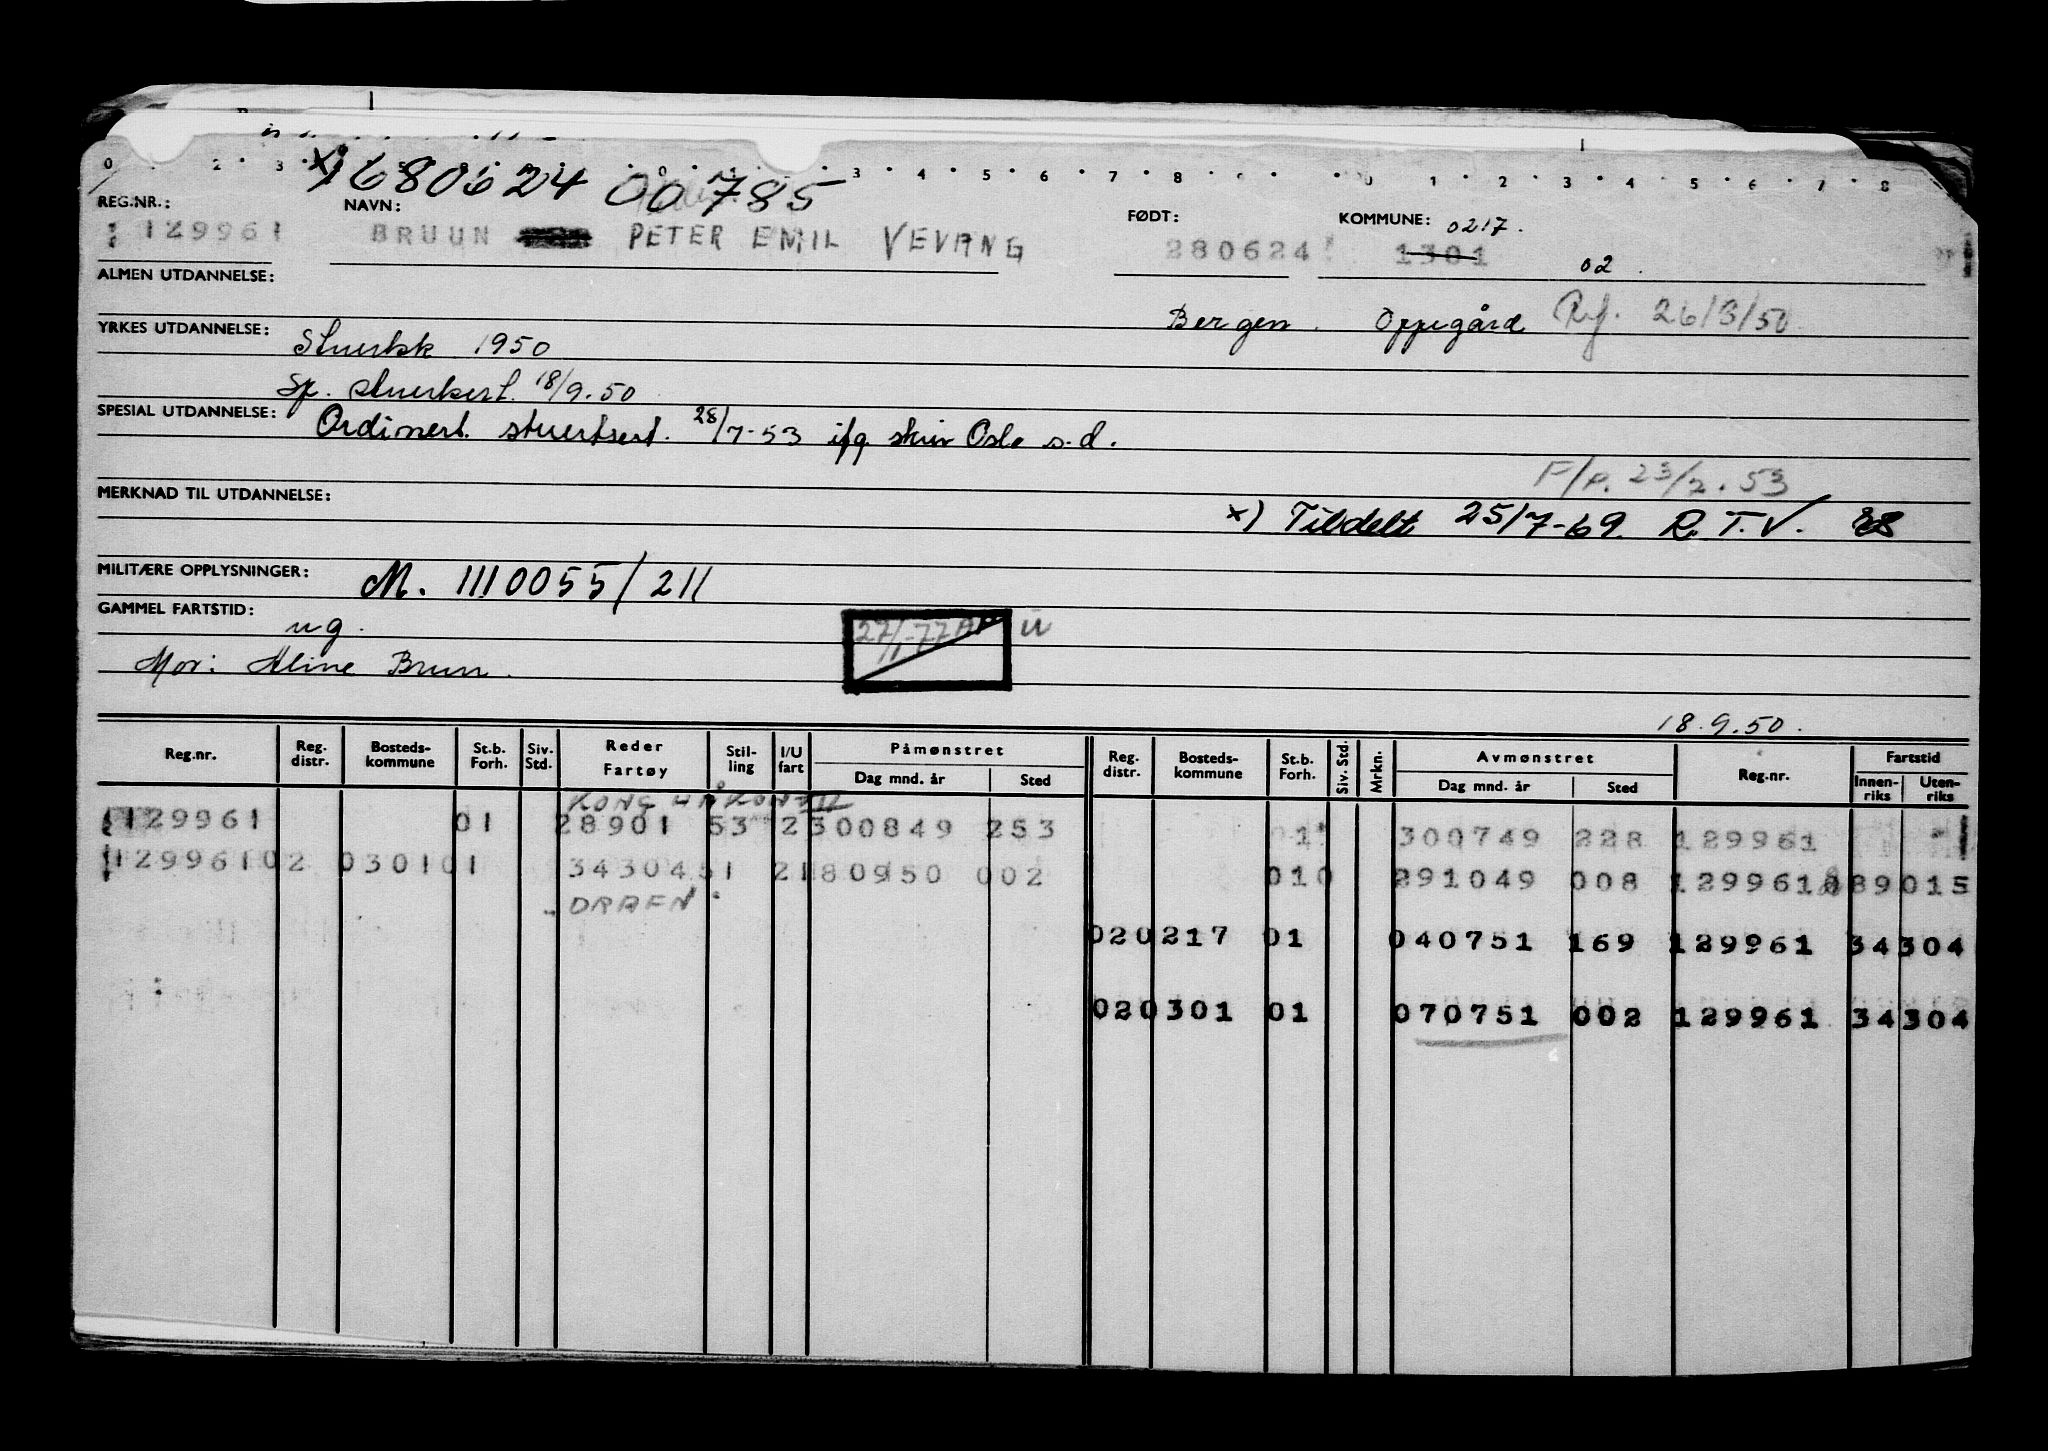 x) 680624 00785
REG.NR.: NAVN: FØDT: KOMMUNE: 0217.
129961 BRUUN PETER EMIL VEVANG 280624 1301
ALMEN UTDANNELSE: 02.
Bergen. Oppegård Rf. 26/3/50
YRKES UTDANNELSE: Stuertsk 1950
Sp. stuertsert. 18/9.50
SPESIAL UTDANNELSE: Ordinert. stuertsert. 28/7-53 ifg skriv Oslo s.d.
F/P. 23/2.53
MERKNAD TIL UTDANNELSE:
x) Tildelt 25/7-69 R.T.V.
MILITÆRE OPPLYSNINGER: M. 1110055/211
GAMMEL FARTSTID: ug.
27/1-77
Mor: Aline Brun.
18.9.50.
Reg.nr. Reg. distr. Bosteds- kommune St.b. Forh. Siv. Std. Reder Fartøy Stil- ling I/U fart Påmønstret Dag mnd. år Sted Reg. distr. Bosteds- kommune St.b. Forh. Siv. Std. Mrkn. Avmønstret Dag mnd. år Sted Reg.nr. Fartstid Innen- riks Uten- riks
KONG HÅKON VII
129961 01 28901 53 2 300849 253 1 300749 228 129961
129961 02 0301 01 34304 51 2 180950 002 010 291049 008 129961 89 015
"DRAFN"
02 0217 01 040751 169 129961 34 304
02 0301 01 070751 002 129961 34 304